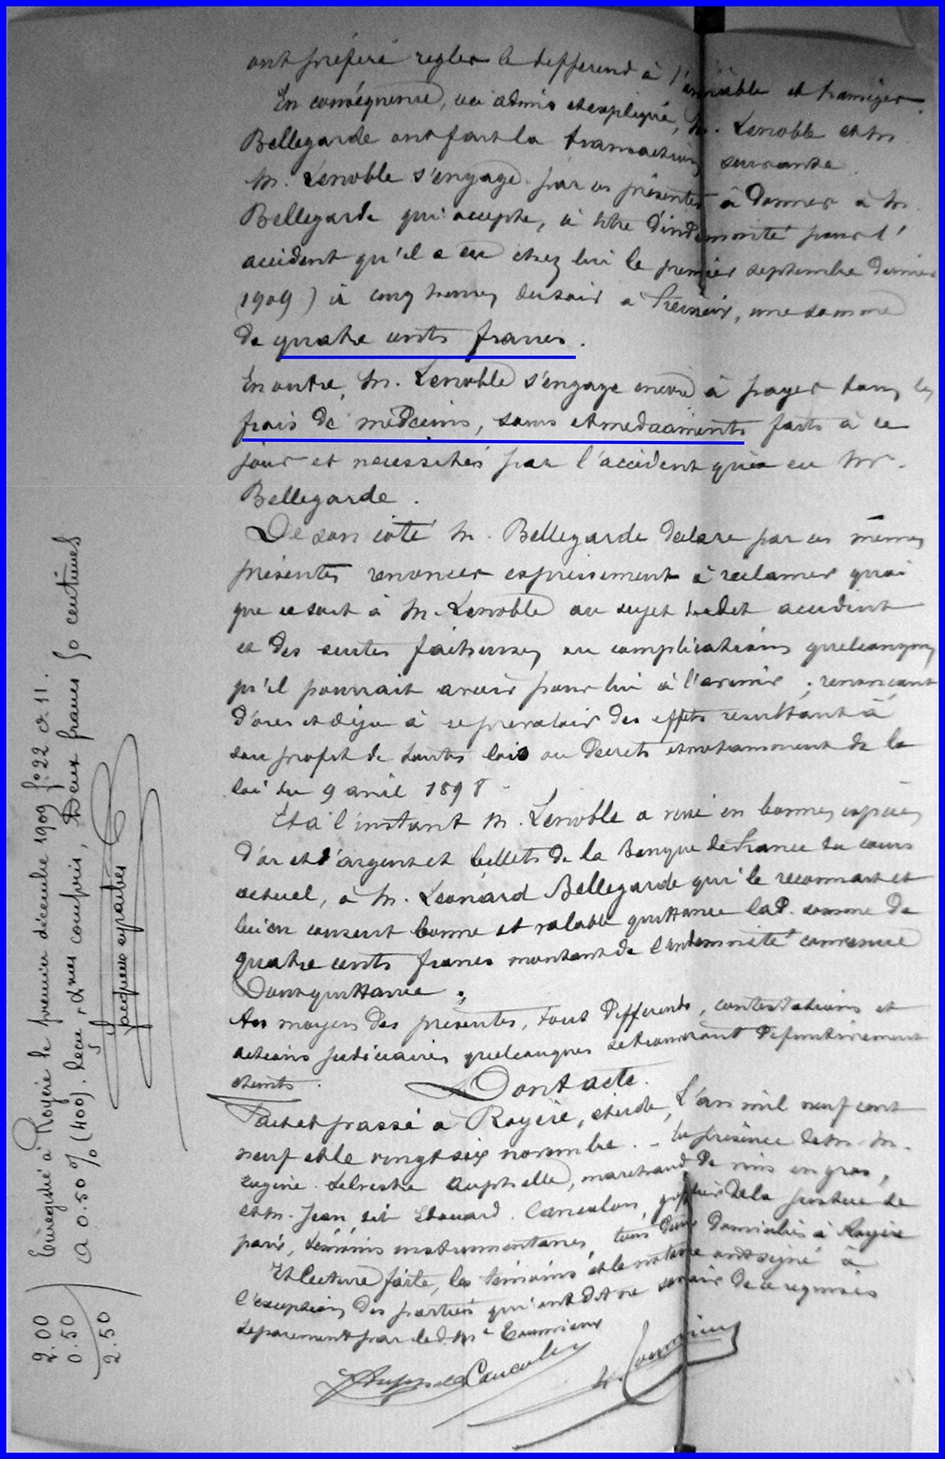 ont préféré régler le différend à l'amiable et transiger
En conséquence, ceci admis et expliqué, M. Lenoble et M.
Bellegarde ont fait la transaction suivante
M. Lenoble s'engage par ces présentes à donner à M.
Bellegarde qui accepte, à titre d'indemnité pour l'
accident qu'il a eu chez lui le premier septembre dernier
(1909) à cinq heures du soir à, une somme
de quatre cents francs.
En outre, M. Lenoble s'engage encore à payer tous les
frais de médecins, soins et médicaments faits à ce
jour et nécessités par l'accident qu'a eu Mr.
Bellegarde.
De son côté M. Bellegarde déclare par ces mêmes
présentes renoncer expressément à réclamer quoi
que ce soit à M. Lenoble au sujet dudit accident
et des suites fâcheuses ou complications quelconques
qu'il pourrait avoir pour lui à l'avenir ; renonçant
d'ores et déjà à se prévaloir des effets résultant à
son profit de toutes lois ou décrets et notamment de la
loi du 9 avril 1898
Et à l'instant M. Lenoble a versé en bonnes espèces
d'or et d'argent et billets de la Banque de France du cours
actuel, à M. Léonard Bellegarde qui le reconnait et
lui en consent bonne et valable quittance lad. somme de
quatre cents francs montant de l'indemnité convenue
Dont quittance.
Au moyen des présentes, tous différends, contestations et
actions judiciaires quelconques se trouvant définitivement
éteints.
Dont acte.
Fait et passé à Royère, étude, L'an mil neuf cent
neuf et le vingt six novembre. - En présence de M. M.
Eugène Silvestre Auphelle, marchand de vins en gros,
et M. Jean, dit Edouard Cancalon, greffier de la justice de
paix, témoins instrumentaires, tous deux domiciliés à Royère
Et lecture faite, les témoins et le notaire ont signé à
l'exception des parties qui ont dit ne savoir de ce requises
séparément par led. Me Coumieux
Cancalon
Enregistré à Royère le premier décembre 1909 f° 22 c. 11.
à 0.50 % (400). Reçu, dixes compris, Deux francs 50 centimes
2.00
0.50
2.50